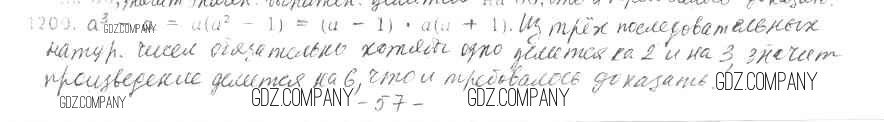 1200. a³ - a = a(a² - 1) = (a - 1) · a(a + 1). Из трёх последовательных
GDZ.COMPANY
GDZ.COMPANY
натур. чисел обязательно хотябы одно делится на 2 и на 3, значит
произведение делится на 6, что и требовалось доказать.
GDZ.COMPANY GDZ.COMPANY GDZ.COMPANY GDZ.COMPANY
- 57 -